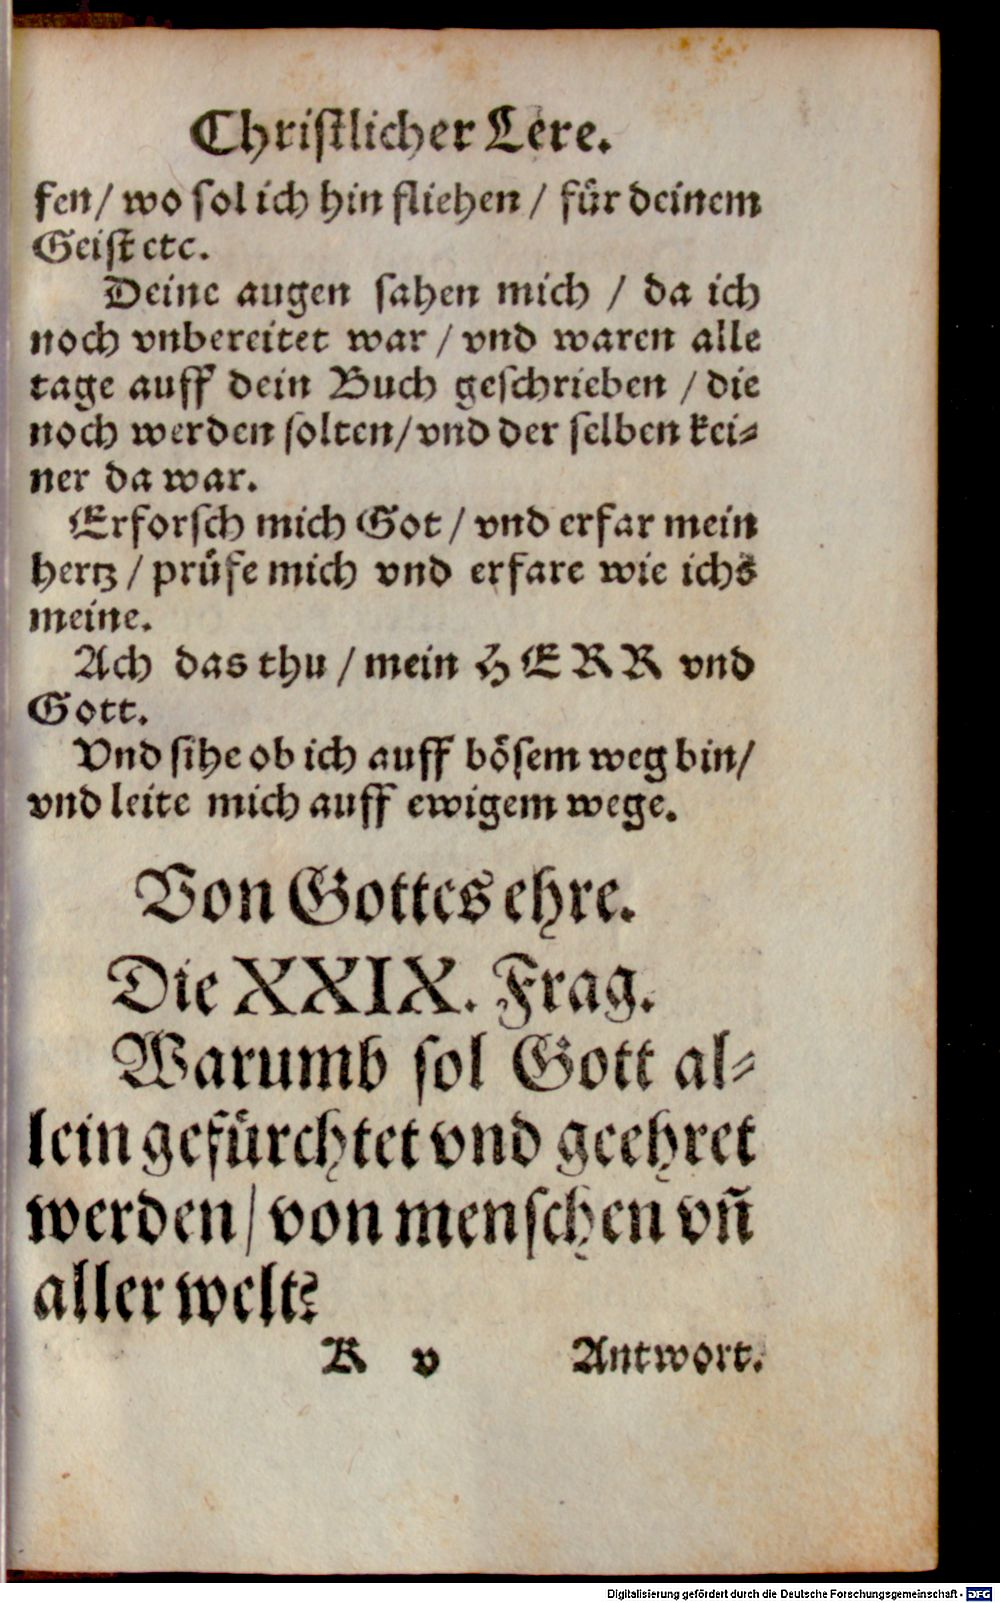 Christlicher Lere.
fen/ wo sol ich hin fliehen / für deinem
Geist etc.
Deine augen sahen mich / da ich
noch vnbereitet war / vnd waren alle
tage auff dein Buch geschrieben / die
noch werden solten/vnd der selben kei⸗
ner da war.
Erforsch mich Got / vnd erfar mein
hertz / prüfe mich vnd erfare wie ichs
meine.
Ach das thu / mein HERR vnd
Gott.
Vnd sihe ob ich auff bösem weg bin/
vnd leite mich auff ewigem wege.
Von Gottes ehre.
Die XXIX. Frag.
Warumb sol Gott al⸗
lein gefürchtet vnd geehret
werden/ von menschen vñ
aller welt?
K v Antwort.
Digitalisierung gefördert durch die Deutsche Forschungsgemeinschaft - DFG